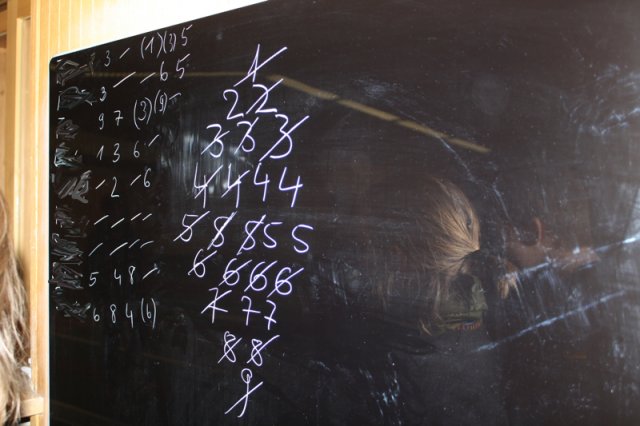 3 - (1) (3) 5
3 - - 6 5
9 7 (3) (9) -
1 3 6 -
- 2 - 6
- - - -
- - - -
5 4 8 -
6 8 4 (6)
1
2 2
3 3 3
4 4 4 4
5 5 5 5 5
6 6 6 6
7 7 7
8 8
9